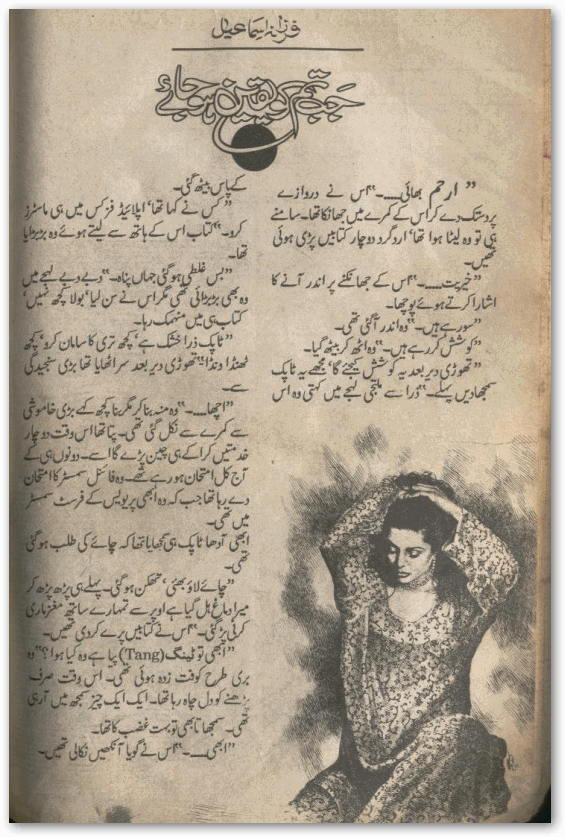 فرزانہ اسماعیل
جب تم کو یقین ہو جائے
”ارحم بھائی.....۔“ اس نے دروازے
پر دستک دے کر اس کے کمرے میں جھانکا تھا۔ سامنے
ہی تو وہ لیٹا ہوا تھا‘ اردگرد دو چار کتابیں پڑی ہوئی
تھیں۔
”خیریت.....۔“ اس کے جھانکنے پر اندر آنے کا
اشارا کرتے ہوئے پوچھا۔
”سو رہے ہیں۔“ وہ اندر آ گئی تھی۔
”کوشش کر رہے ہیں۔“ وہ اٹھ کر بیٹھ گیا۔
”تھوڑی دیر بعد یہ کوشش کیجئے گا‘ مجھے یہ ٹاپک
سمجھا دیں پہلے۔“ ذرا سے ملتجی لہجے میں کہتی وہ اس
کے پاس بیٹھ گئی۔
”کس نے کہا تھا‘ اپلائیڈ فزکس میں ہی ماسٹرز
کرو۔“ کتاب اس کے ہاتھ سے لیتے ہوئے وہ بڑبڑایا
تھا۔
”بس غلطی ہو گئی جہاں پناہ۔“ دبے دبے لہجے میں
وہ بھی بڑبڑائی تھی مگر اس نے سن لیا‘ بولا کچھ نہیں‘
کتاب ہی میں منہمک رہا۔
”ٹاپک ذرا خشک ہے‘ کچھ تری کا سامان کرو‘ کچھ
ٹھنڈا ونڈا“ تھوڑی دیر بعد سر اٹھایا تھا بڑی سنجیدگی
سے۔
”اچھا.....۔“ وہ منہ بنا کر مگر بنا کچھ کہے بڑی خاموشی
سے کمرے سے نکل گئی تھی۔ پتا تھا اس وقت دو چار
خدمتیں کرا کے ہی چین پڑے گا اسے۔ دونوں ہی کے
آج کل امتحان ہو رہے تھے۔ وہ فائنل سمسٹر کا امتحان
دے رہا تھا جب کہ وہ ابھی پریویس کے فرسٹ سمسٹر
میں تھی۔
ابھی آدھا ٹاپک ہی سمجھایا تھا کہ چائے کی طلب ہو گئی
تھی۔
”چائے لاؤ بھئی‘ تھکن ہو گئی۔ پہلے ہی پڑھ پڑھ کر
میرا دماغ ہل گیا ہے اوپر سے تمہارے ساتھ مغزماری
کرنی پڑ گئی۔“ اس نے کتابیں پرے کر دی تھیں۔
”ابھی تو ٹینگ (Tang) پیا ہے وہ کیا ہوا؟“ وہ
بری طرح کوفت زدہ ہوئی تھی۔ اس وقت صرف
پڑھنے کو دل چاہ رہا تھا۔ ایک ایک چیز سمجھ میں آ رہی
تھی۔ سمجھاتا بھی تو بہت غضب کا تھا۔
”ابھی.....۔“ اس نے گویا آنکھیں نکالی تھیں۔